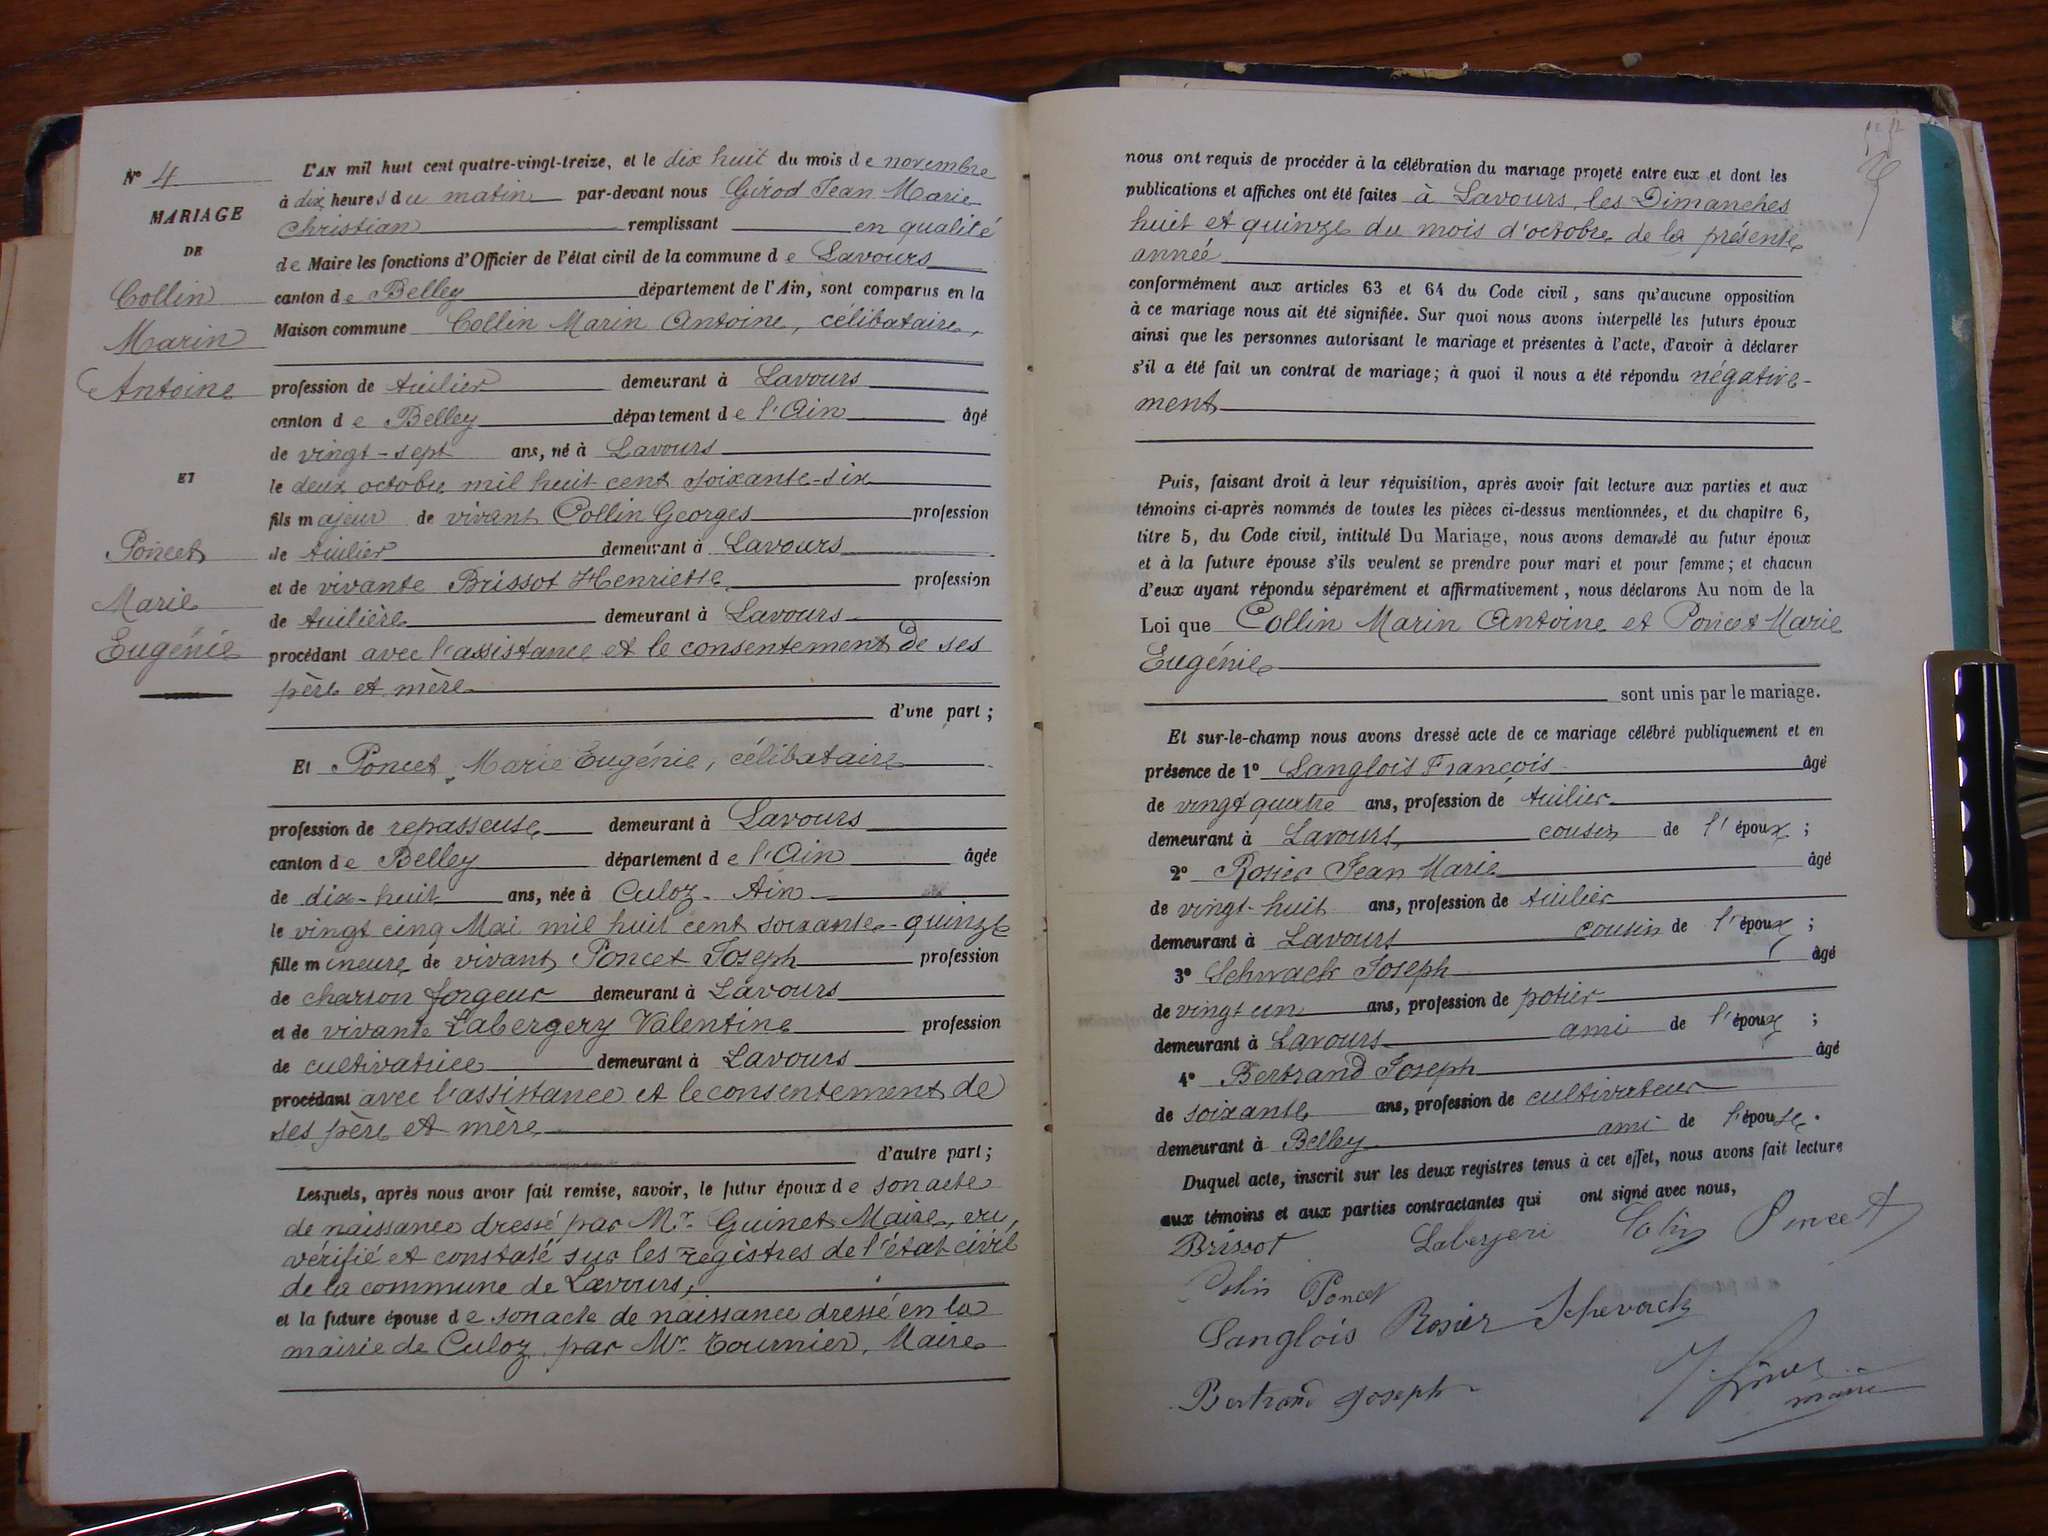 N° 4
MARIAGE
DE
Collin
Marin
Antoine
ET
Poncet
Marie
Eugénie
L'AN mil huit cent quatre-vingt-treize, et le dix huit du mois de novembre
à dix heures du matin par-devant nous Girod Jean Marie
Christian remplissant en qualité
de Maire les fonctions d'Officier de l'état civil de la commune de Lavours
canton de Belley département de l'Ain, sont comparus en la
Maison commune Collin Marin Antoine, célibataire,
profession de tuilier demeurant à Lavours
canton de Belley département de l'Ain âgé
de vingt-sept ans, né à Lavours
le deux octobre mil huit cent soixante-six
fils majeur de vivant Collin Georges profession
de tuilier demeurant à Lavours
et de vivante Brissot Henriette profession
de tuilière demeurant à Lavours
procédant avec l'assistance et le consentement de ses
père et mère
d'une part;
Et Poncet Marie Eugénie, célibataire
profession de repasseuse demeurant à Lavours
canton de Belley département de l'Ain âgée
de dix-huit ans, née à Culoz - Ain
le vingt cinq Mai mil huit cent soixante-quinze
fille mineure de vivant Poncet Joseph profession
de charron forgeur demeurant à Lavours
et de vivante Labergery Valentine profession
de cultivatrice demeurant à Lavours
procédant avec l'assistance et le consentement de
ses père et mère
d'autre part;
Lesquels, après nous avoir fait remise, savoir, le futur époux de son acte
de naissance dressé par Mr. Guinet Maire, vu,
vérifié et constaté sur les registres de l'état civil
de la commune de Lavours,
et la future épouse de son acte de naissance dressé en la
mairie de Culoz par Mr Tournier, Maire
nous ont requis de procéder à la célébration du mariage projeté entre eux et dont les
publications et affiches ont été faites à Lavours, les Dimanches
huit et quinze du mois d'octobre de la présente
année
conformément aux articles 63 et 64 du Code civil, sans qu'aucune opposition
à ce mariage nous ait été signifiée. Sur quoi nous avons interpellé les futurs époux
ainsi que les personnes autorisant le mariage et présentes à l'acte, d'avoir à déclarer
s'il a été fait un contrat de mariage; à quoi il nous a été répondu négative-
ment
Puis, faisant droit à leur réquisition, après avoir fait lecture aux parties et aux
témoins ci-après nommés de toutes les pièces ci-dessus mentionnées, et du chapitre 6,
titre 5, du Code civil, intitulé Du Mariage, nous avons demandé au futur époux
et à la future épouse s'ils veulent se prendre pour mari et pour femme; et chacun
d'eux ayant répondu séparément et affirmativement, nous déclarons Au nom de la
Loi que Collin Marin Antoine et Poncet Marie
Eugénie
sont unis par le mariage.
Et sur-le-champ nous avons dressé acte de ce mariage célébré publiquement et en
présence de 1° Langlois François âgé
de vingt quatre ans, profession de tuilier
demeurant à Lavours, cousin de l'époux;
2° Rosier Jean Marie âgé
de vingt-huit ans, profession de tuilier
demeurant à Lavours cousin de l'époux;
3° Schwack Joseph âgé
de vingt un ans, profession de potier
demeurant à Lavours ami de l'époux;
4° Bertrand Joseph âgé
de soixante ans, profession de cultivateur
demeurant à Belley ami de l'épouse.
Duquel acte, inscrit sur les deux registres tenus à cet effet, nous avons fait lecture
aux témoins et aux parties contractantes qui ont signé avec nous,
Brissot Laberjeri Colin Poncet
Colin Poncet
Langlois Rosier Schevack
Bertrand Joseph
maire